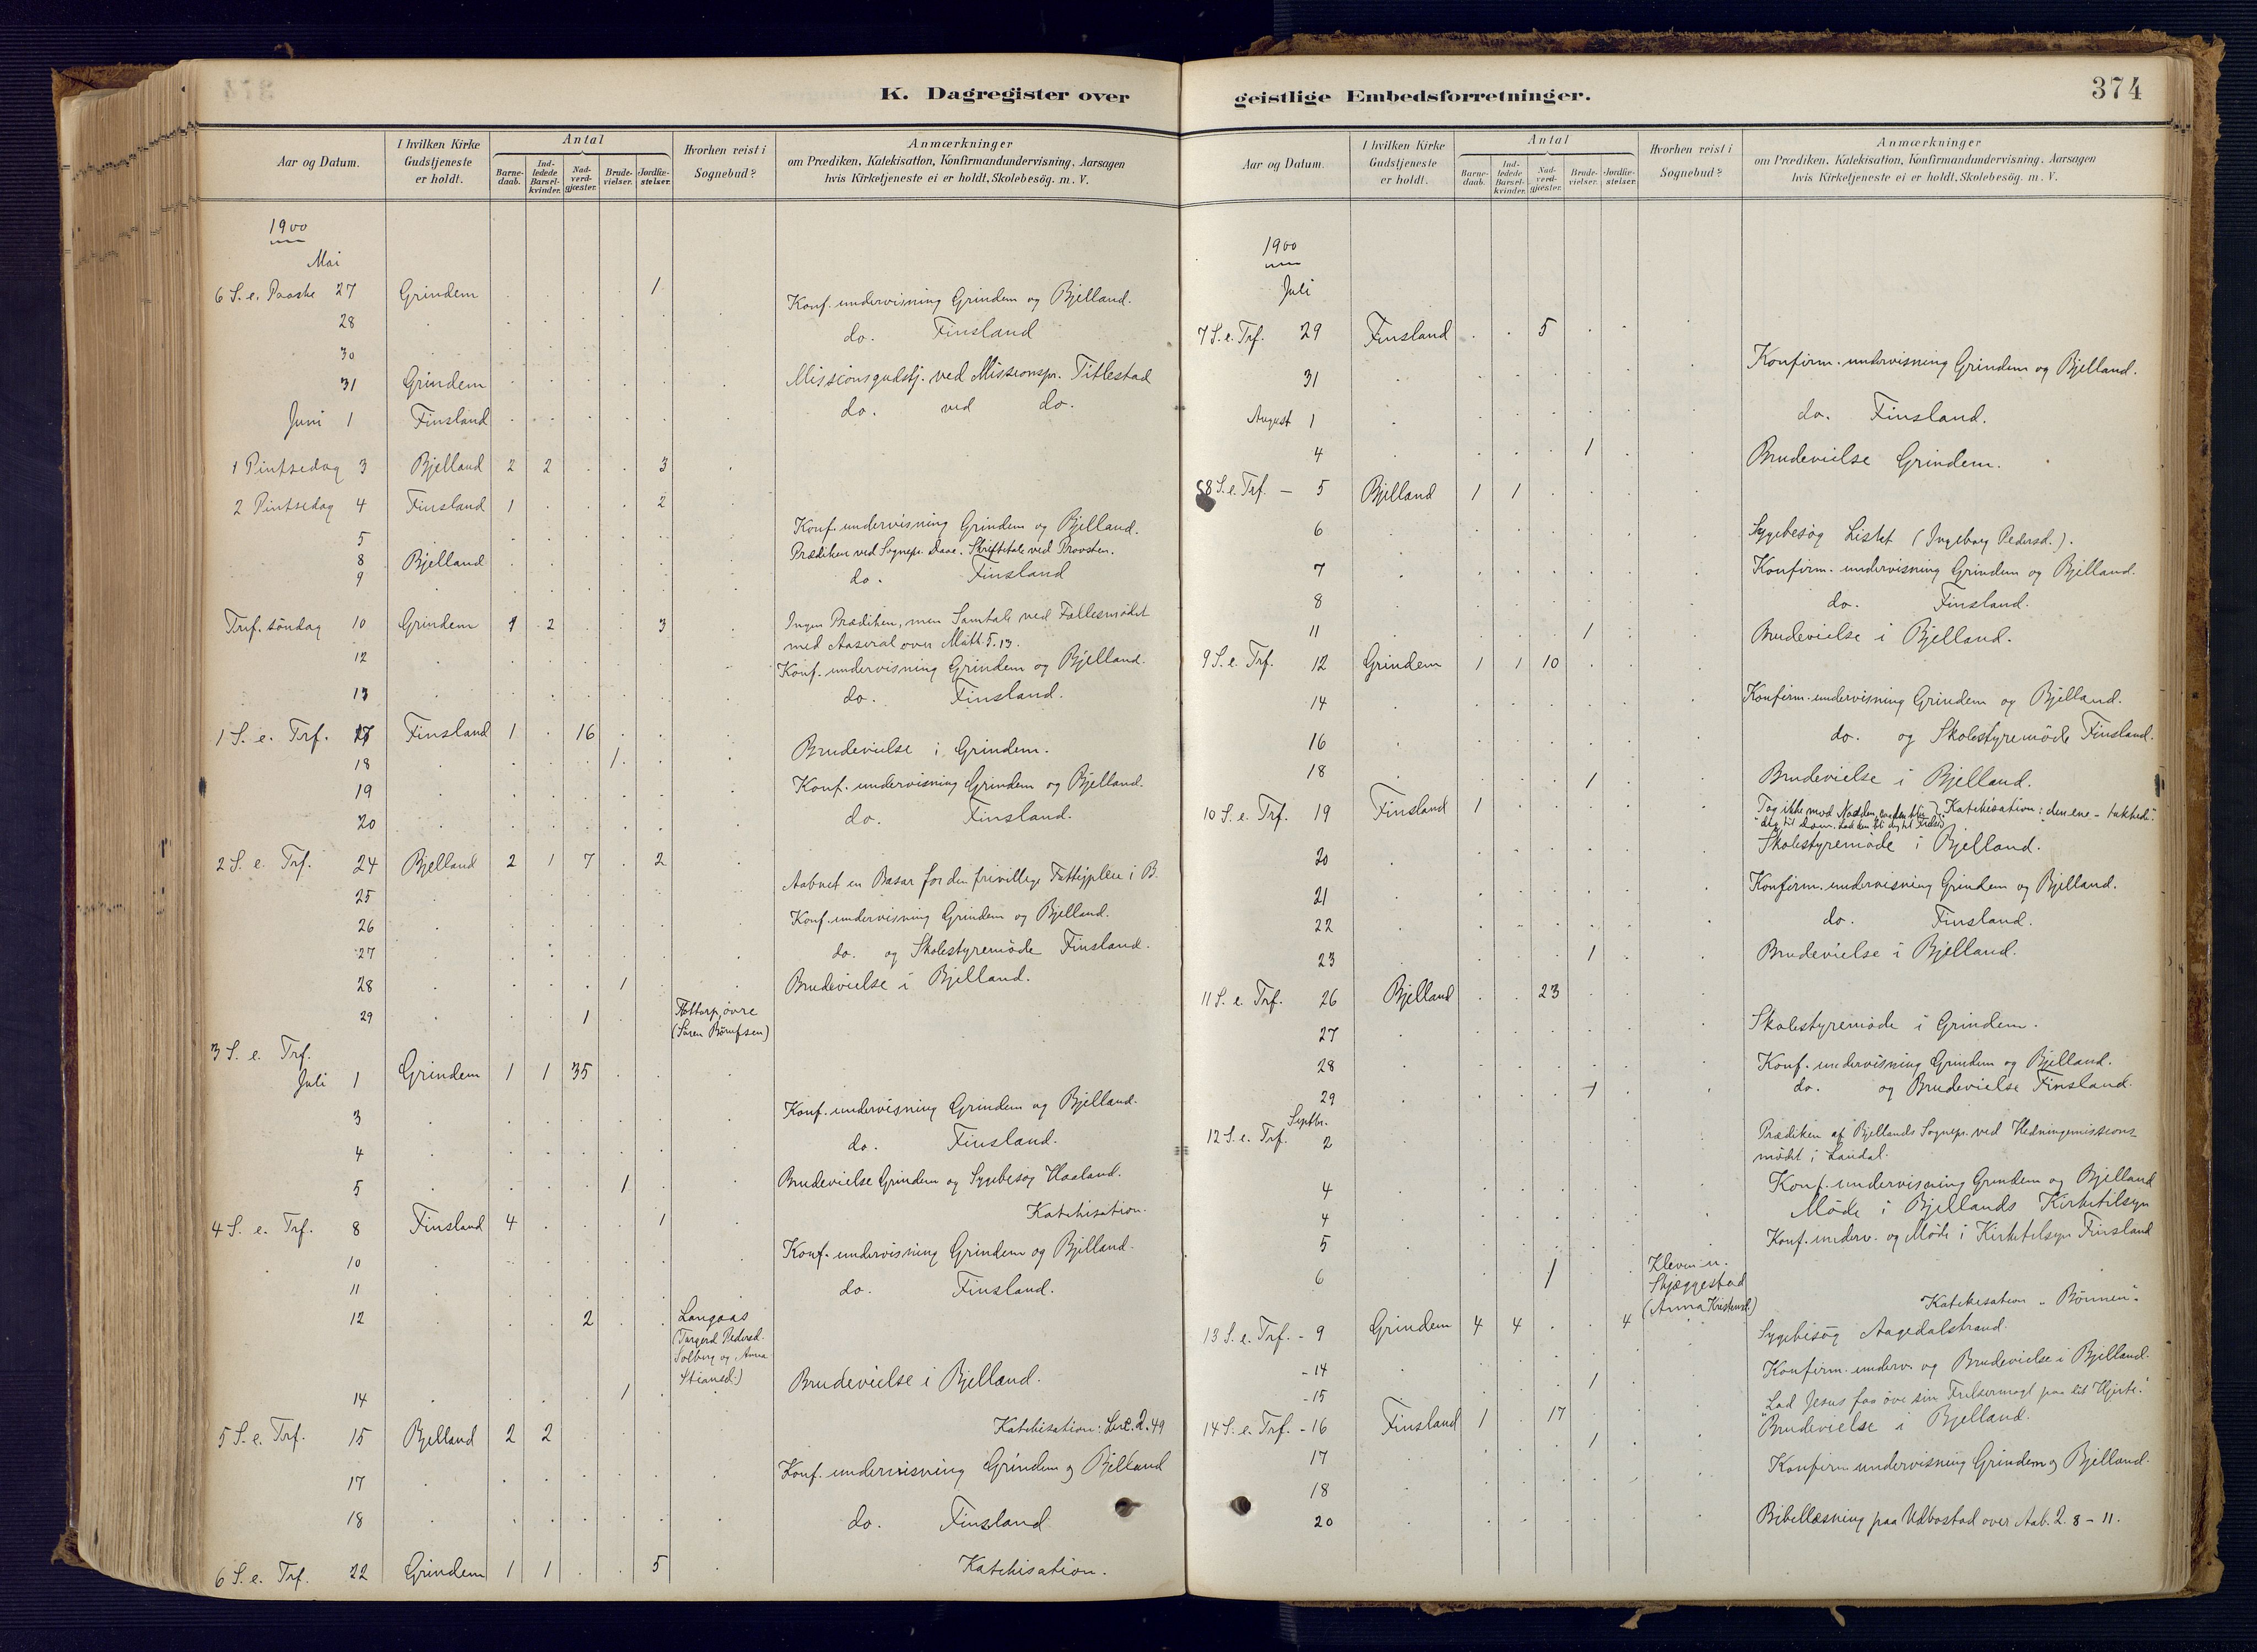 K. Dagregister over
Aar og Datum.
I hvilken Kirke Gudstjeneste er holdt.
Antal
Barnedaab.
Indledede Barselkvinder.
Nadverdgjæster.
Brudevielser.
Jordfæstelser.
Hvorhen reist i Sognebud?
Anmærkninger
om Prædiken, Katekisation, Konfirmandundervisning, Aarsagen
hvis Kirketjeneste ei er holdt, Skolebesög. m. V.
1900
Mai
6 S. e. Paaske 27 Grindem 1
28 Konf. undervisning Grindem og Bjelland.
30 do. Finsland
31 Grindem Missionsgudstj. ved Missionspr. Titlestad
Juni 1 Finsland do. ved do.
1 Pintsedag 3 Bjelland 2 2 3
2 Pintsedag 4 Finsland 1 2
5 Konf. undervisning Grindem og Bjelland.
8 Bjelland Prædiken ved Sognepr. Daae. Skriftetale ved Provsten.
9 do. Finsland
Tref. söndag 10 Grindem 1 2 3 Ingen Prædiken, men Samtale ved Fællesmødet
med Aaseral over Math. 5.13.
12 Konf. undervisning Grindem og Bjelland.
13 do. Finsland.
1 S. e. Trf. 17 Finsland 1 16
18 1 Brudevielse i Grindem.
19 Konf. undervisning Grindem og Bjelland.
20 do. Finsland.
2 S. e. Trf. 24 Bjelland 2 1 7 2
25 Aabnet en Basar for den frivillige Fattigpleie i B.
26 Konf. undervisning Grindem og Bjelland.
27 do. og Skolestyremöde Finsland.
28 1 Brudevielse i Bjelland.
29 1 øvre
(Sören)
3 S. e. Trf.
Juli 1 Grindem 1 1 35
3 Konf. undervisning Grindem og Bjelland.
4 do. Finsland.
5 1 Brudevielse Grindem og Sygebesøg Haaland.
4 S. e. Trf. 8 Finsland 4 1 Katekisation.
10 Konf. undervisning Grindem og Bjelland.
11 do. Finsland.
12 2 Langaas
(Torgerd Pedersd.
Solberg og Anna
Stiansd.)
14 1 Brudevielse i Bjelland.
5 S. e. Trf. 15 Bjelland 2 2 Katekisation: Luc. 2.49
17 Konf. undervisning Grindem og Bjelland
18 do. Finsland
6 S. e. Trf. 22 Grindem 1 1 5 Katekisation.
geistlige Embedsforretninger.
374
Aar og Datum.
I hvilken Kirke Gudstjeneste er holdt.
Antal
Barnedaab.
Indledede Barselkvinder.
Nadverdgjæster.
Brudevielser.
Jordfæstelser.
Hvorhen reist i Sognebud?
Anmærkninger
om Prædiken, Katekisation, Konfirmandundervisning, Aarsagen
hvis Kirketjeneste ei er holdt, Skolebesög. m. V.
1900
Juli
7 S. e. Trf. 29 Finsland 5
31 Konfirm. undervisning Grindem og Bjelland.
August 1 do. Finsland.
4 1 Brudevielse Grindem.
8 S. e. Trf. - 5 Bjelland 1 1
6 Sygebesøg Listet (Ingeborg Pedersd.).
7 Konfirm. undervisning Grindem og Bjelland.
8 do. Finsland.
11 1 Brudevielse i Bjelland.
9 S. e. Trf. 12 Grindem 1 1 10
14 Konfirm. undervisning Grindem og Bjelland.
16 do. og Skolestyremöde Finsland.
18 1 Brudevielse i Bjelland.
10 S. e. Trf. 19 Finsland 1 Tag ikke mod Naaden Katekisation: den ene
dig til Dom.
20 Skolestyremöde i Bjelland.
21 Konfirm. undervisning Grindem og Bjelland.
22 do. Finsland.
23 1 Brudevielse i Bjelland.
11 S. e. Trf. 26 Bjelland 23
27 Skolestyremöde i Grindem.
28 Konf. undervisning Grindem og Bjelland.
29 1 do. og Brudevielse Finsland.
Septbr.
12 S. e. Trf. 2 Prædiken af Bjellands Sognepr. ved Hedningemissions-
mödet i Laudal.
4 Konf. undervisning Grindem og Bjelland
4 Möde i Bjellands Kirketilsyn
5 Konf. underv. og Möde i Kirketilsyn Finsland
6 1 Kleven n.
Skjæggestad
(Anna Kristensd.)
13 S. e. Trf. - 9 Grindem 4 4 4 Katekisation "Bönnen".
Sygebesøg Aagedalstrand.
- 14 Konfirm. underv. og Brudevielse i Bjelland.
- 15 1
14 S. e. Trf. - 16 Finsland 1 17 "Lad Jesus faa öve sin Frelsermagt paa dit Hjerte."
17 1 Brudevielse i Bjelland.
18 Konfirm. undervisning Grindem og Bjelland.
20 Bibellæsning paa Udbostad over Aab. 2. 8-11.